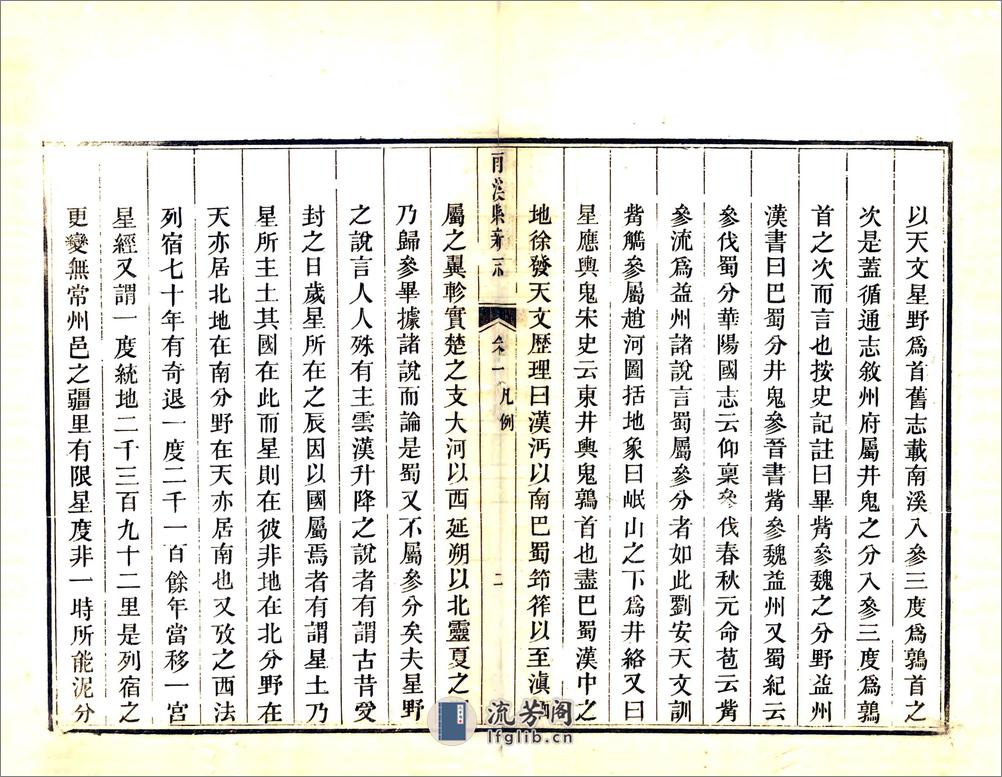 以天文星野爲首舊志載南溪入參三度爲鶉首之
次是蓋循通志敘州府屬井鬼之分入參三度爲鶉
首之次而言也按史記註曰畢觜參魏之分野益州
漢書曰巴蜀分井鬼參晉書觜參魏益州又蜀紀云
參伐蜀分華陽國志云仰稟參伐春秋元命苞云觜
參流爲益州諸說言蜀屬參分者如此劉安天文訓
觜觿參屬趙河圖括地象曰岷山之下爲井絡又曰
星應輿鬼宋史云東井輿鬼鶉首也盡巴蜀漢中之
地徐發天文歷理曰漢沔以南巴蜀笻筰以至滇
南溪縣新志
卷一 凡例
二
屬之翼軫實楚之支大河以西延朔以北靈夏之
乃歸參畢據諸說而論是蜀又不屬參分矣夫星野
之說言人人殊有主雲漢升降之說者有謂古昔受
封之日歲星所在之辰因以國屬焉者有謂星土乃
星所主土其國在此而星則在彼非地在北分野在
天亦居北地在南分野在天亦居南也又攷之西法
列宿七十年有奇退一度二千一百餘年當移一宮
星經又謂一度統地二千三百九十二里是列宿之
更變無常州邑之疆里有限星度非一時所能泥分
流芳阁
lfglib.cn